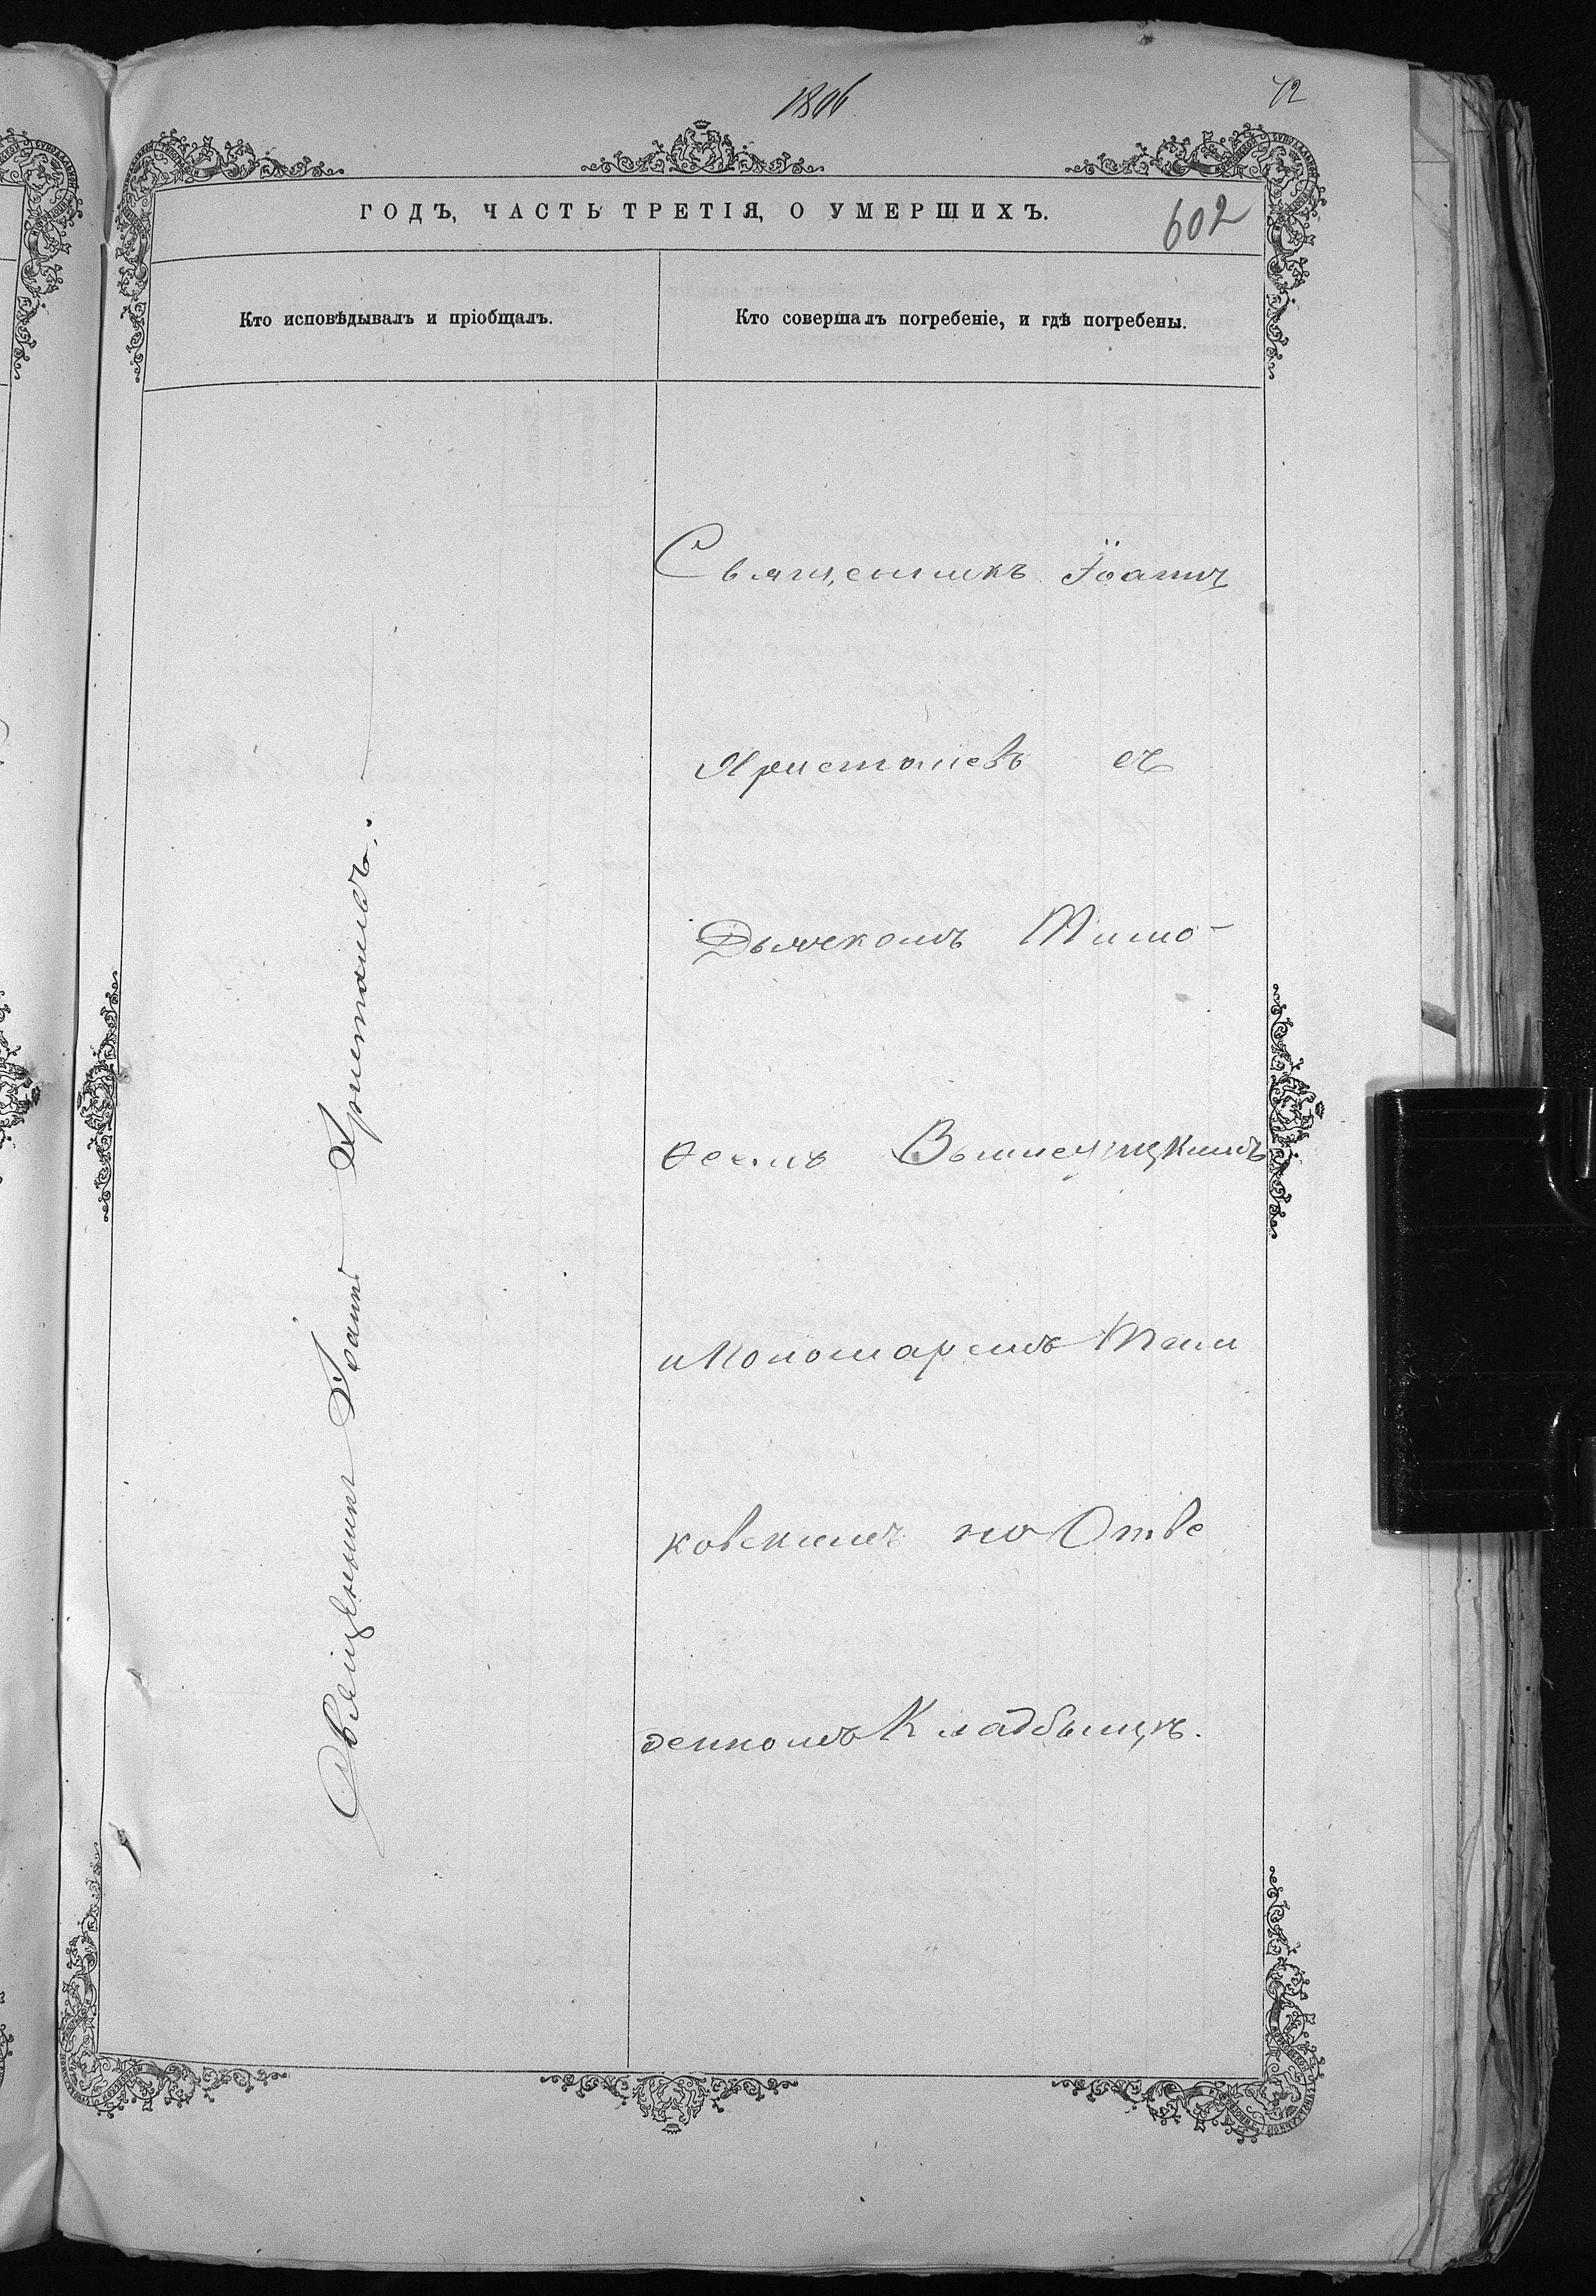 1806
72
ГОДЪ, ЧАСТЬ ТРЕТІЯ, О УМЕРШИХЪ.
602
Кто исповѣдывалъ и пріобщалъ.
Кто совершалъ погребеніе, и гдѣ погребены.
Священникъ Іоаннъ
Священникъ Іоаннъ
съ
Дьячкомъ Тимо-
ѳеемъ
и Пономаремъ
ковскимъ на Отве
денномъ Кладбыщѣ.